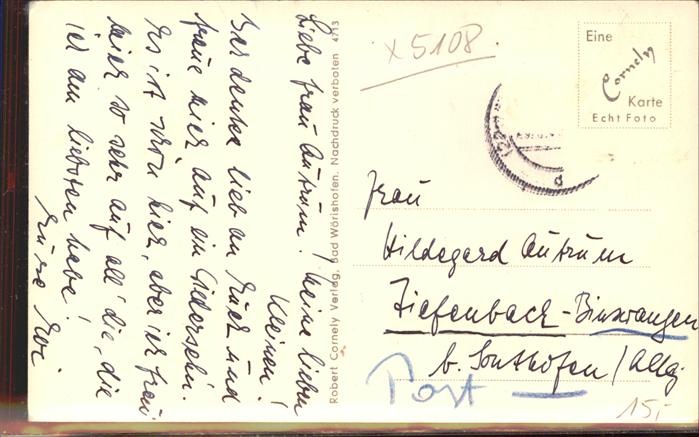 Liebe Frau Autrum! Meine lieben
Kleinen!
Ber denke lieb an Euch und
freue mich auf ein Wiedersehn.
Es ist schön hier, aber ich freu
mich so sehr auf all' die, die
ich am liebsten habe!
Eure
Robert Cornely Verlag, Bad Wörishofen. Nachdruck verboten 4713
x 5108.
Eine
Cornely
Karte
Echt Foto
Frau
Hildegard Autrum
Tiefenbach-Binswangen
b. Sonthofen/Allg
Post
15,-